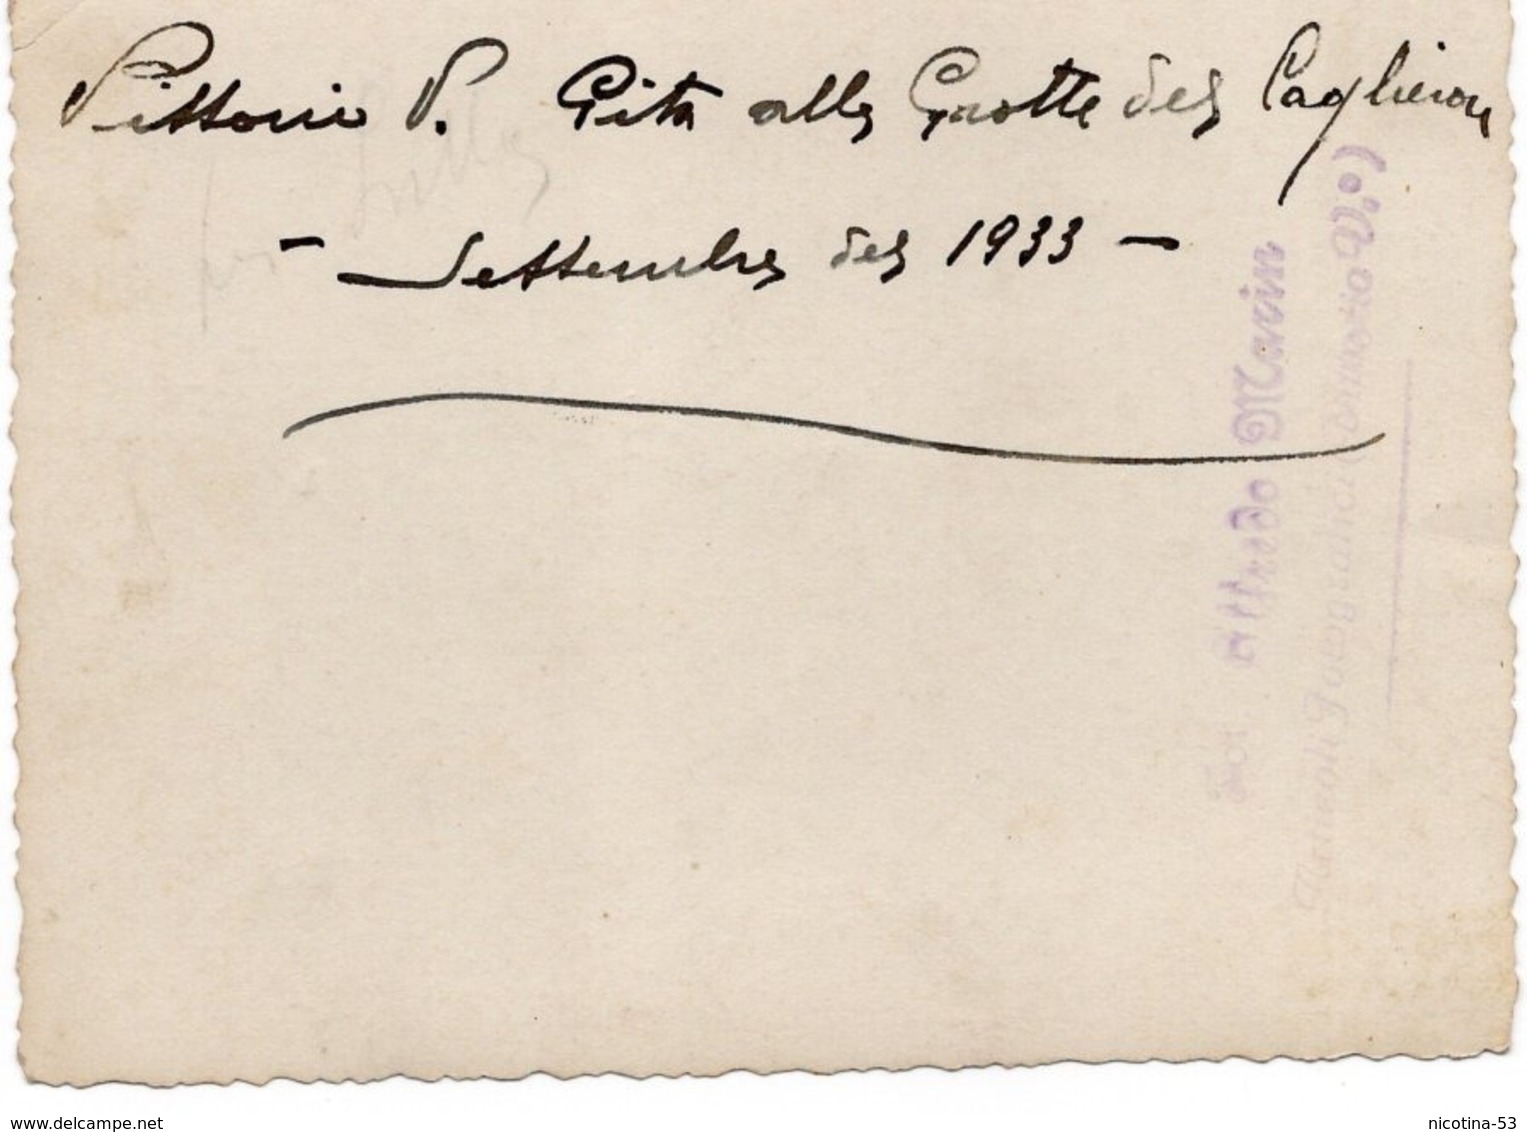 Vittorio V. Gita alle Grotte del Caglieron
- Settembre del 1933 -
Alfredo Marin
Vittorio V.º)
www.delcampe.net
nicotina-53